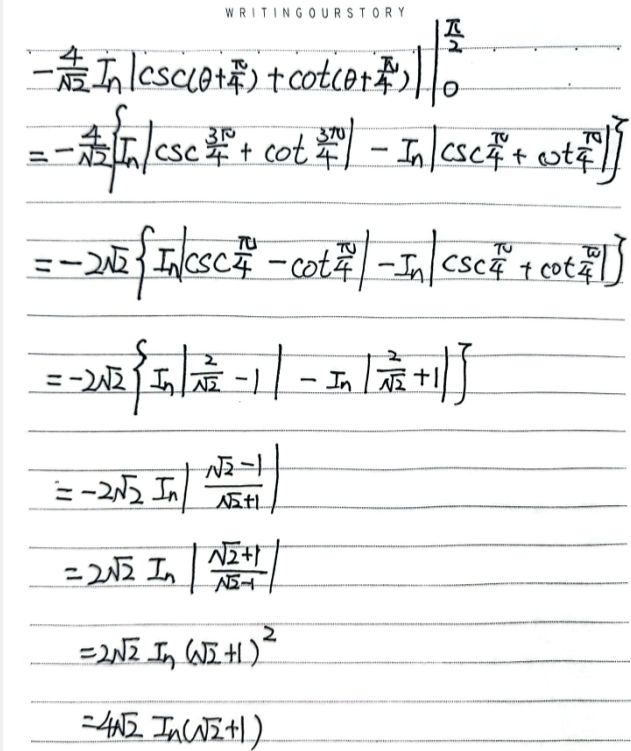 WRITINGOURSTORY
-4/√2 In|csc(θ+π/4)+cot(θ+π/4)| |π/2 0
=-4/√2{In|csc 3π/4 + cot 3π/4| - In|csc π/4 + cot π/4|}
=-2√2{In|csc π/4 - cot π/4| - In|csc π/4 + cot π/4|}
=-2√2{In|2/√2 - 1| - In|2/√2 + 1|}
=-2√2 In|(√2-1)/(√2+1)|
=2√2 In|(√2+1)/(√2-1)|
=2√2 In(√2+1)²
=4√2 In(√2+1)